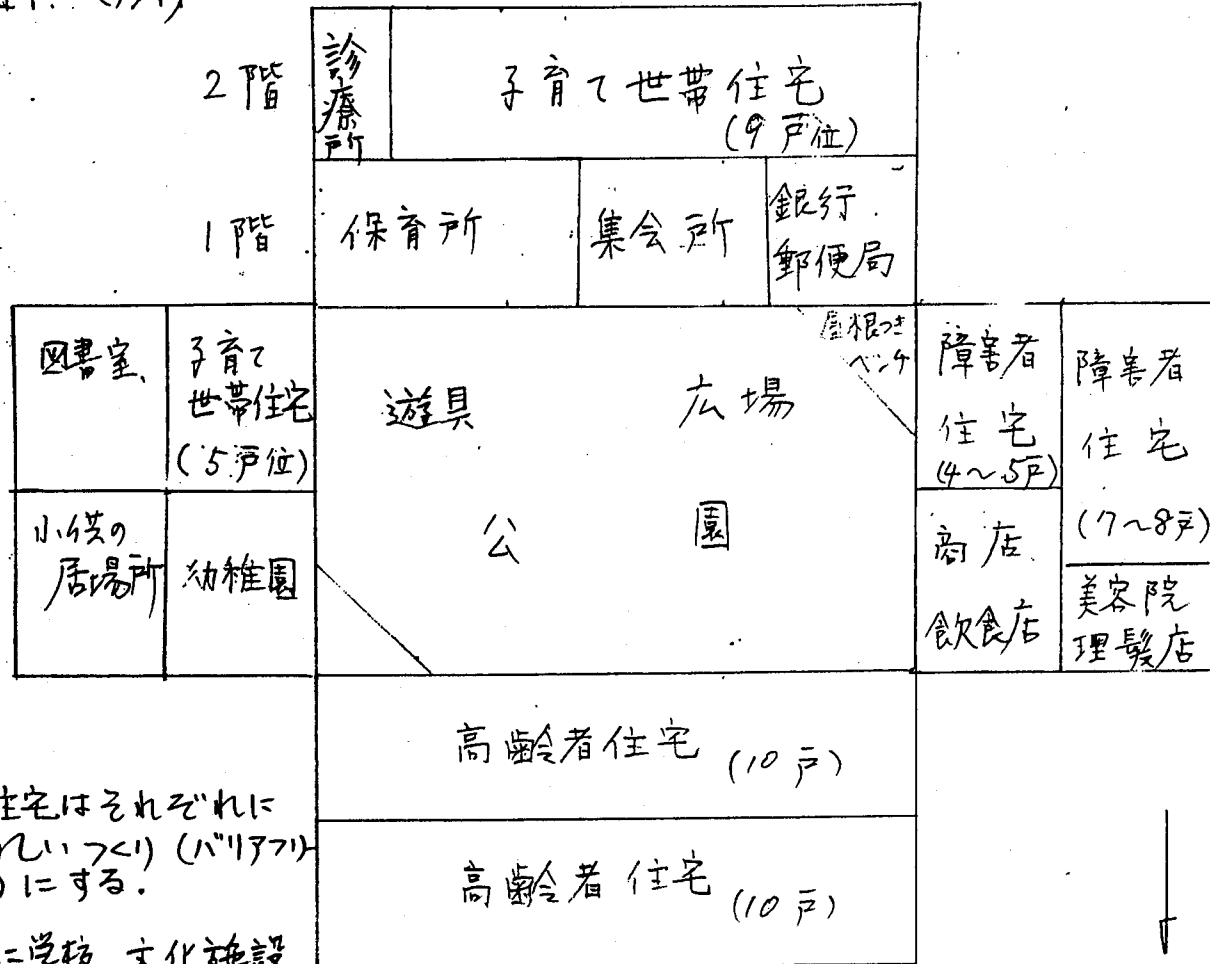 2階
診療所
子育て世帯住宅
(9戸位)
1階
保育所
集会所
銀行
郵便局
図書室
子育て
世帯住宅
(5戸位)
小供の
居場所
幼稚園
遊具
広場
屋根つき
ベンチ
公園
障害者
住宅
(4〜5戸)
障害者
住宅
(7〜8戸)
商店
飲食店
美容院
理髪店
高齢者住宅 (10戸)
高齢者住宅 (10戸)
住宅はそれぞれに
しいつくり(バリアフリー
)にする.
に学校 文化施設